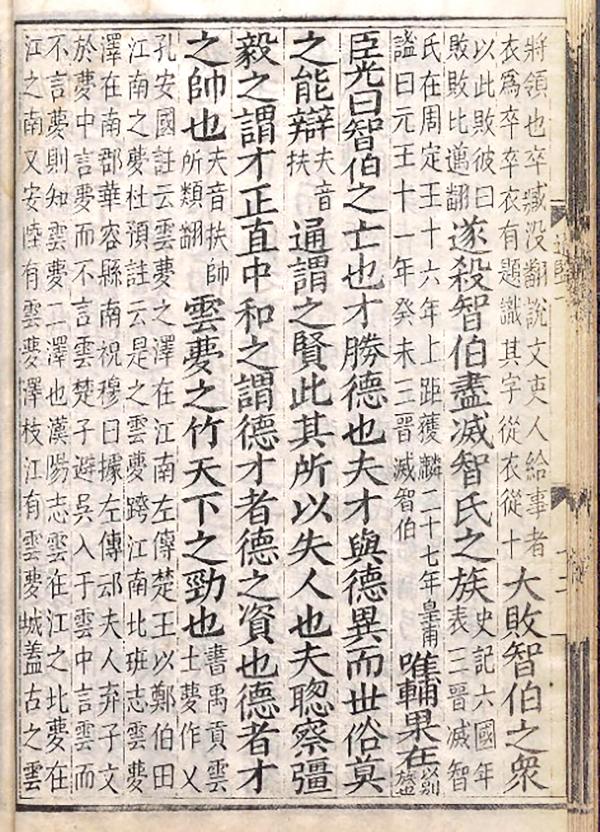 將領也卒臧没翻說文吏人給事者衣為卒卒衣有題識其字從衣從十大敗智伯之衆
以此敗彼曰敗敗比邁翻遂殺智伯盡滅智氏之族史記六國年表三晉滅智
氏在周定王十六年上距獲麟二十七年皇甫謚曰元王十一年癸未三晉滅智伯唯輔果在以别族也
臣光曰智伯之亡也才勝德也夫才與德異而世俗莫
之能辯夫音扶通謂之賢此其所以失人也夫聰察彊
毅之謂才正直中和之謂德才者德之資也德者才
之帥也夫音扶帥所類翻雲夢之竹天下之勁也書禹貢雲土夢作乂
孔安國註云雲夢之澤在江南左傳楚王以鄭伯田
江南之夢杜預註云是之雲夢跨江南北班志雲夢
澤在南郡華容縣南祝穆曰據左傳䢵夫人弃子文
於夢中言夢而不言雲楚子避吳入于雲中言雲而
不言夢則知雲夢二澤也漢陽志雲在江之北夢在
江之南又安陸有雲夢澤枝江有雲夢城蓋古之雲